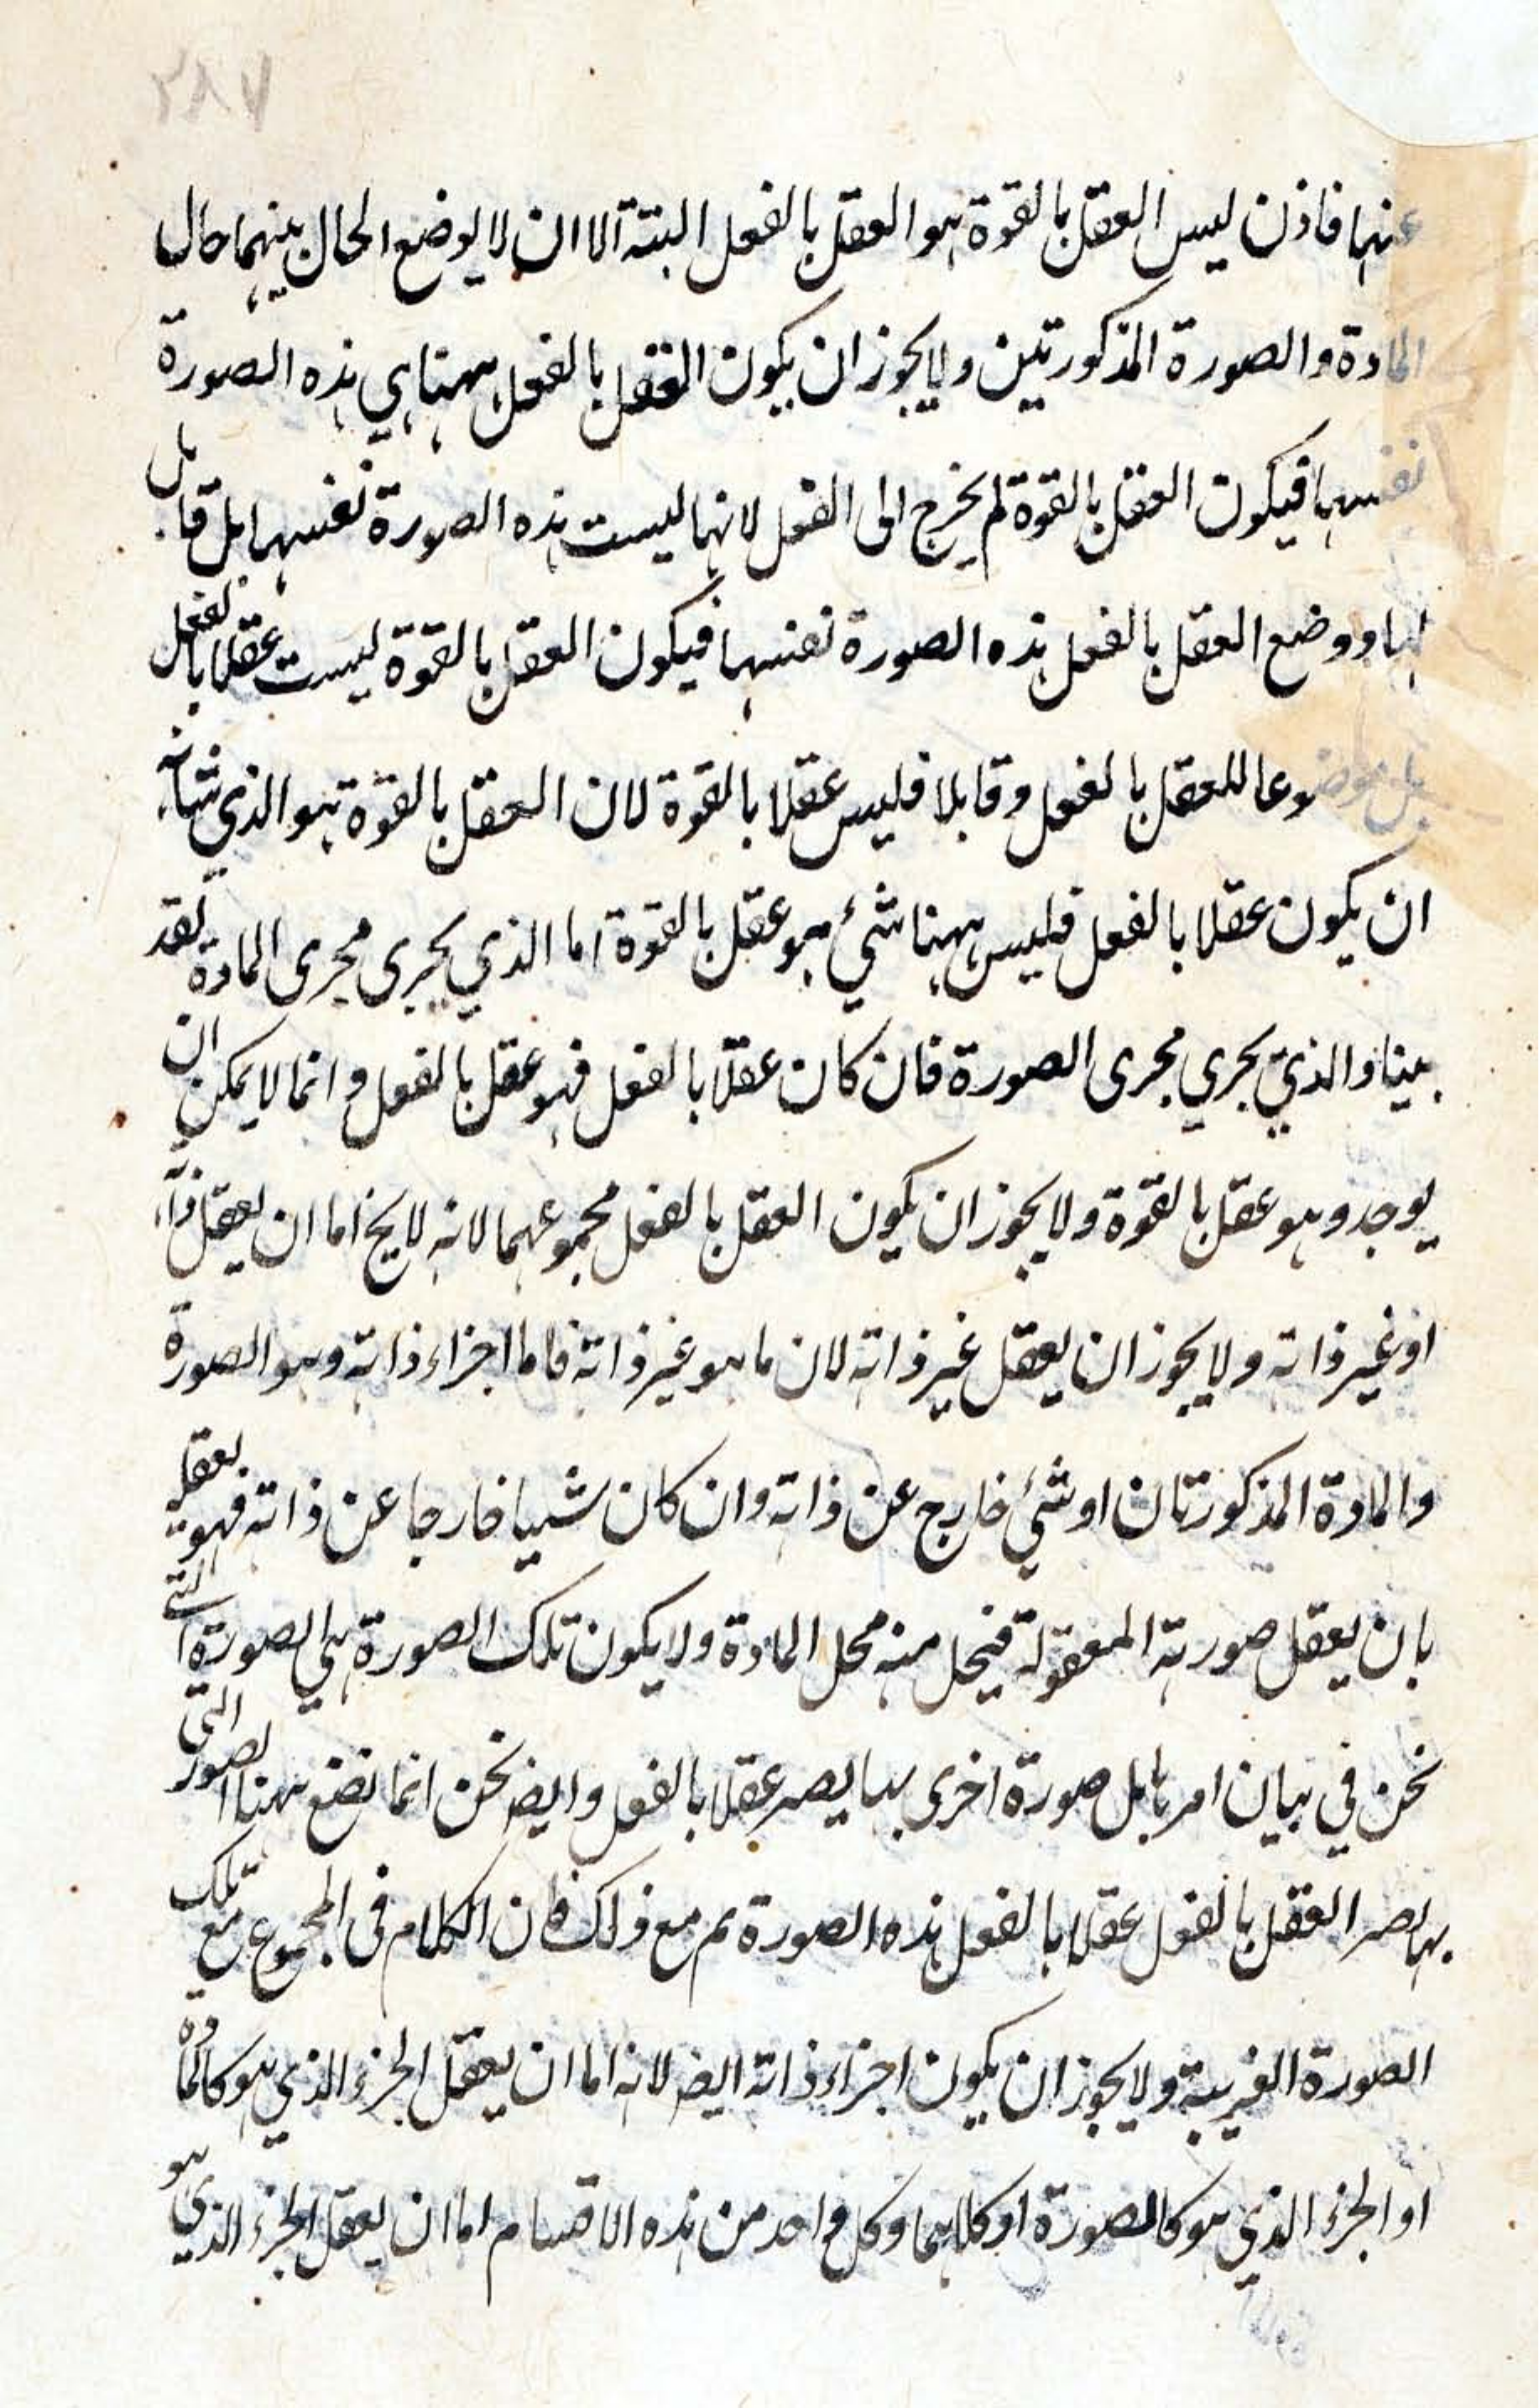 ٢٨٧
عنهما فاذن ليس العقل بالقوة هو العقل بالفعل البتة الا ان لا يوضع الحال بينهما حال
المادة والصورة المذكورتين ولا يجوز ان يكون العقل بالفعل ههنا هي هذه الصورة
نفسها فيكون العقل بالقوة لم يخرج الى الفعل لانها ليست هذه الصورة نفسها بل قابل
لها ووضع العقل بالفعل هذه الصورة نفسها فيكون العقل بالقوة ليست عقلا بالفعل
بل موضوعا للعقل بالفعل وقابلا فليس عقلا بالقوة لان العقل بالقوة هو الذي شانه
ان يكون عقلا بالفعل فليس ههنا شيء هو عقل بالقوة اما الذي يجرى مجرى المادة لقد
بينا والذي يجري مجرى الصورة فان كان عقلا بالفعل فهو عقل بالفعل وانما لا يمكن ان
يوجد وهو عقل بالقوة ولا يجوز ان يكون العقل بالفعل مجموعهما لانه لا يخ اما ان يعقل ذاته
او غير ذاته ولا يجوز ان يعقل غير ذاته لان ما هو غير ذاته فاما اجزاء ذاته وهو الصورة
والمادة المذكورتان او شيء خارج عن ذاته وان كان شييا خارجا عن ذاته فهو يعقل
بان يعقل صورته المعقولة فيحل منه محل المادة ولا يكون تلك الصورة هي الصورة التي
نحن في بيان امرها بل صورة اخرى بها يصر عقلا بالفعل وايض نحن انما نضع ههنا الصور التي
بها يصر العقل بالفعل عقلا بالفعل هذه الصورة ثم مع ذلك فان الكلام فى المجموع مع تلك
الصورة الغريبة ولا يجوز ان يكون اجزاء ذاته ايض لانه اما ان يعقل الجزء الذي هو كالمادة
او الجزء الذي هو كالصورة او كلاهما وكل واحد من هذه الاقسام اما ان يعقل الجزء الذي هو